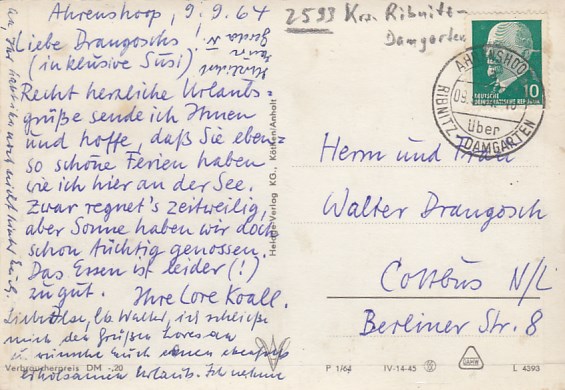 Ahrenshoop, 9.9.64
Liebe Drangoschs,
(inklusive Susi)
Recht herzliche Urlaubs-
grüße sende ich Ihnen
und hoffe, daß Sie eben
so schöne Ferien haben
wie ich hier an der See.
Zwar regnet's zeitweilig,
aber Sonne haben wir doch
schon tüchtig genossen.
Das Essen ist leider (!)
zu gut. Ihre Lore Koall.
Liebe Ilse, lb. Walter, ich schließe
mich den Grüßen Lores an
u. wünsche Euch einen ebenfalls
erholsamen Urlaub. Ich nehme
an, Ihr
Verbraucherpreis DM -,20
Heldge-Verlag KG., Köthen/Anhalt
2593 Krs. Ribnitz-
Damgarten
10
DEUTSCHE
DEMOKRATISCHE REPUBLIK
AHRENSHOO
09.
über
RIBNITZ-DAMGARTEN
Herrn und Frau
Walter Drangosch
Cottbus N/L
Berliner Str. 8
P 1/64 IV-14-45 L 4393